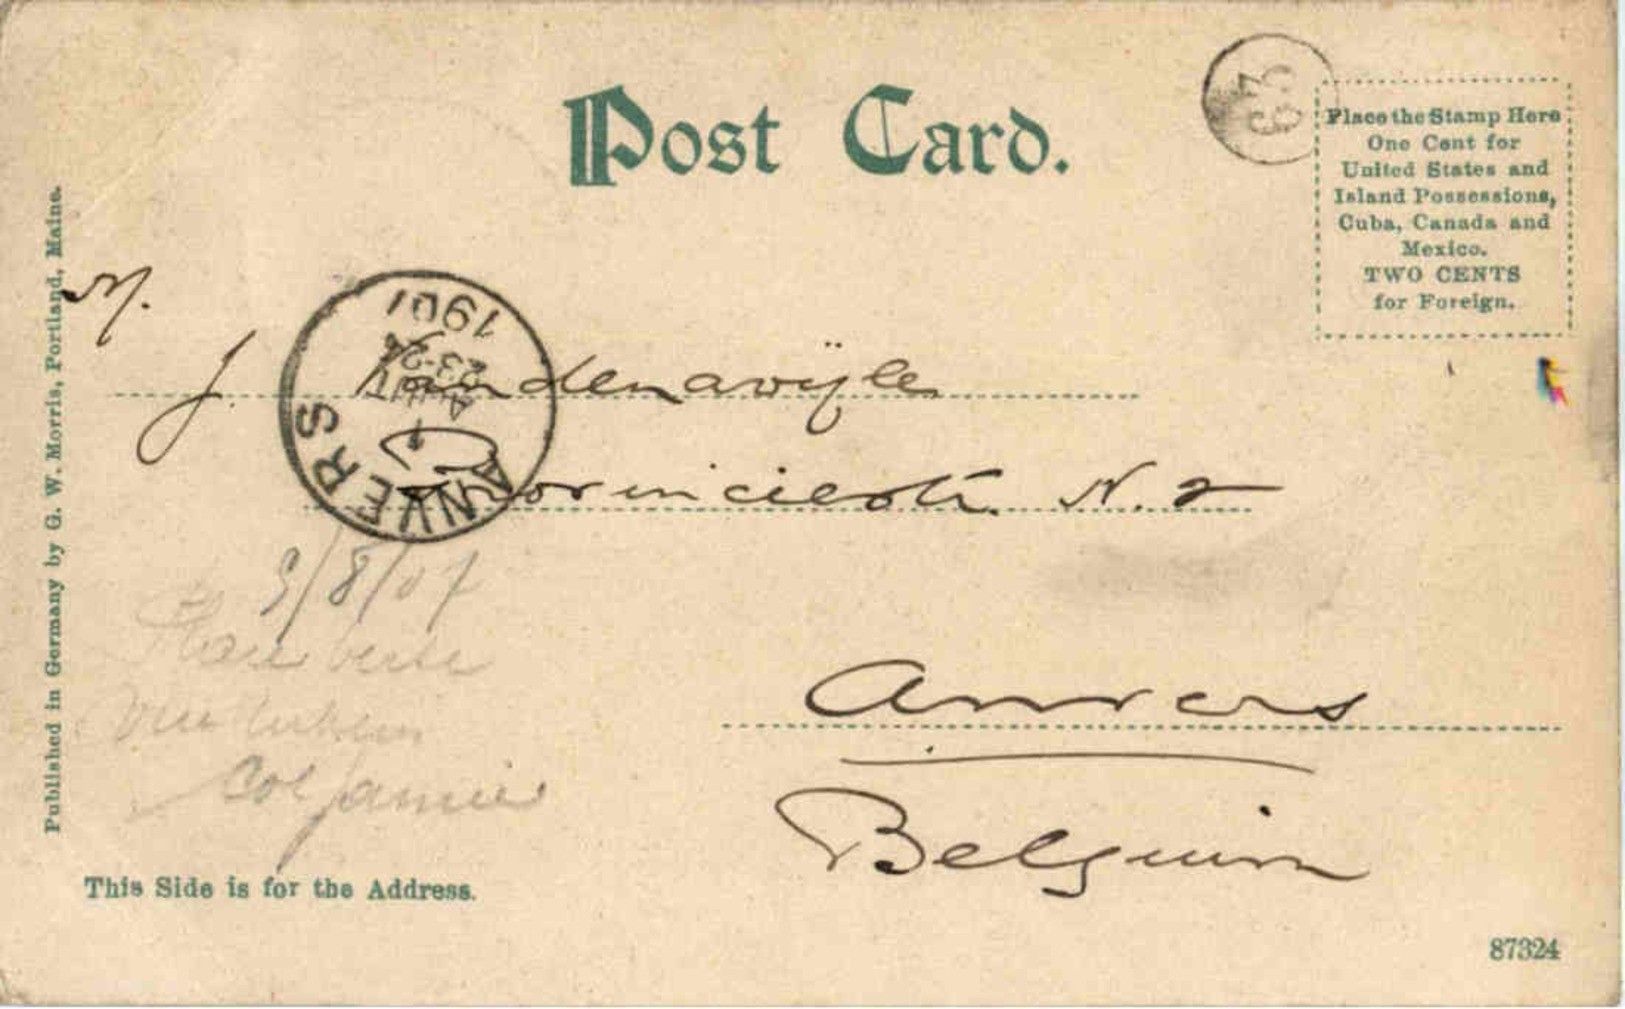 Post Card.
63
Place the Stamp Here
One Cent for
United States and
Island Possessions,
Cuba, Canada and
Mexico.
TWO CENTS
for Foreign.
Published in Germany by G. W. Morris, Portland, Maine.
M.
J. Vandenawÿle
Provinciestr. N. 2
Anvers
Belgium
ANVERS
23-24
1907
9/8/07
This Side is for the Address.
87324